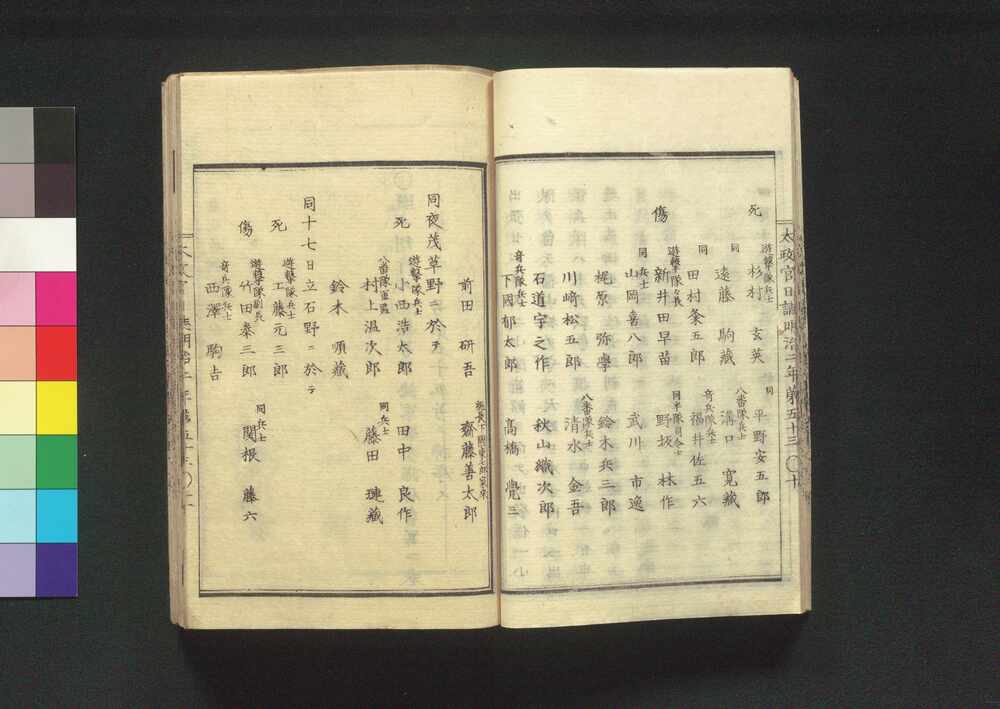 太政官日誌明治二年第五十三 〇十
死
遊擊隊兵士
杉村 玄英
同
平野安五郎
同
遠藤 駒藏
八番隊兵士
溝口 寬藏
同
田村粂五郎
奇兵隊兵士
福井佐五六
傷
遊擊隊
新井田早苗
同半隊司令士
野坂 林作
同 兵士
山岡喜八郎
武川 市逸
梶原 弥學
鈴木兵三郎
川﨑松五郎
八番隊兵士
清水 金吾
石道宇之作
秋山織次郎
奇兵隊兵士
下國郁太郎
髙橋 覺三
前田 研吾
齋藤善太郎
同夜茂草野ニ於テ
死
遊擊隊兵士
小西浩太郎
田中 良作
八番隊
村上温次郎
同 兵士
藤田 璉藏
鈴木 順藏
同十七日立石野ニ於テ
死
遊擊隊兵士
工藤元三郎
傷
遊擊隊副長
竹田泰三郎
同 兵士
関根 藤六
奇兵隊兵士
西澤 駒吉